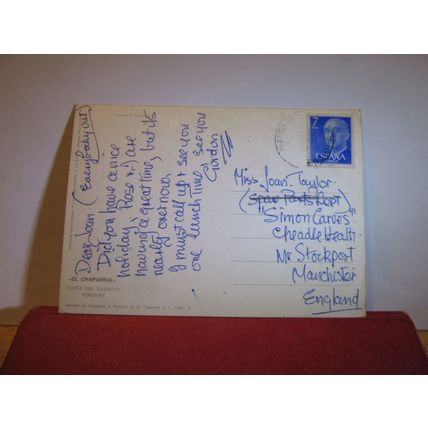 Dear Joan (Everybody out)
Did you have a nice
holiday, Rose & I are
having a great time, but its
nearly over now,
I must call up & see you
one lunch time see you
Gordon
«EL CHAPARRAL»
COSTA DEL SILENCIO
TENERIFE
ESPAÑA
Miss Joan Taylor
(Spare Parts Dept)
"Simon Carves"
Cheadle Heath
Nr Stockport
Manchester
England